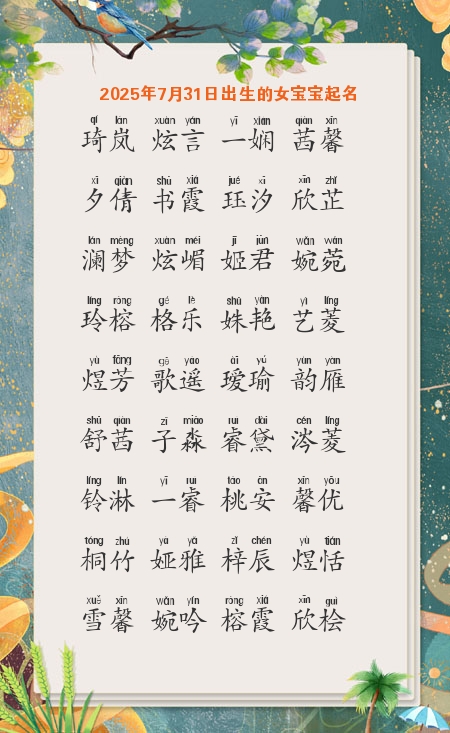 2025年7月31日出生的女宝宝起名
qí lán xuàn yán yī xián qiàn xīn
琦岚 炫言 一娴 茜馨
xī qiàn shū xiá jué xī xīn zhǐ
夕倩 书霞 珏汐 欣芷
lán mèng xuàn mèi jī jūn wǎn wǎn
澜梦 炫嵋 姬君 婉菀
líng róng gé lè shū yàn yì líng
玲榕 格乐 姝艳 艺菱
yù fāng gē yáo ài yú yùn yàn
煜芳 歌遥 瑷瑜 韵雁
shū qiàn zǐ miǎo ruì dài cén líng
舒茜 子淼 睿黛 涔菱
líng lín yī ruì táo ān xīn yōu
铃淋 一睿 桃安 馨优
tóng zhú yà yǎ zǐ chén yù tián
桐竹 娅雅 梓辰 煜恬
xuě xīn wǎn yín róng xiá xīn guì
雪馨 婉吟 榕霞 欣桧